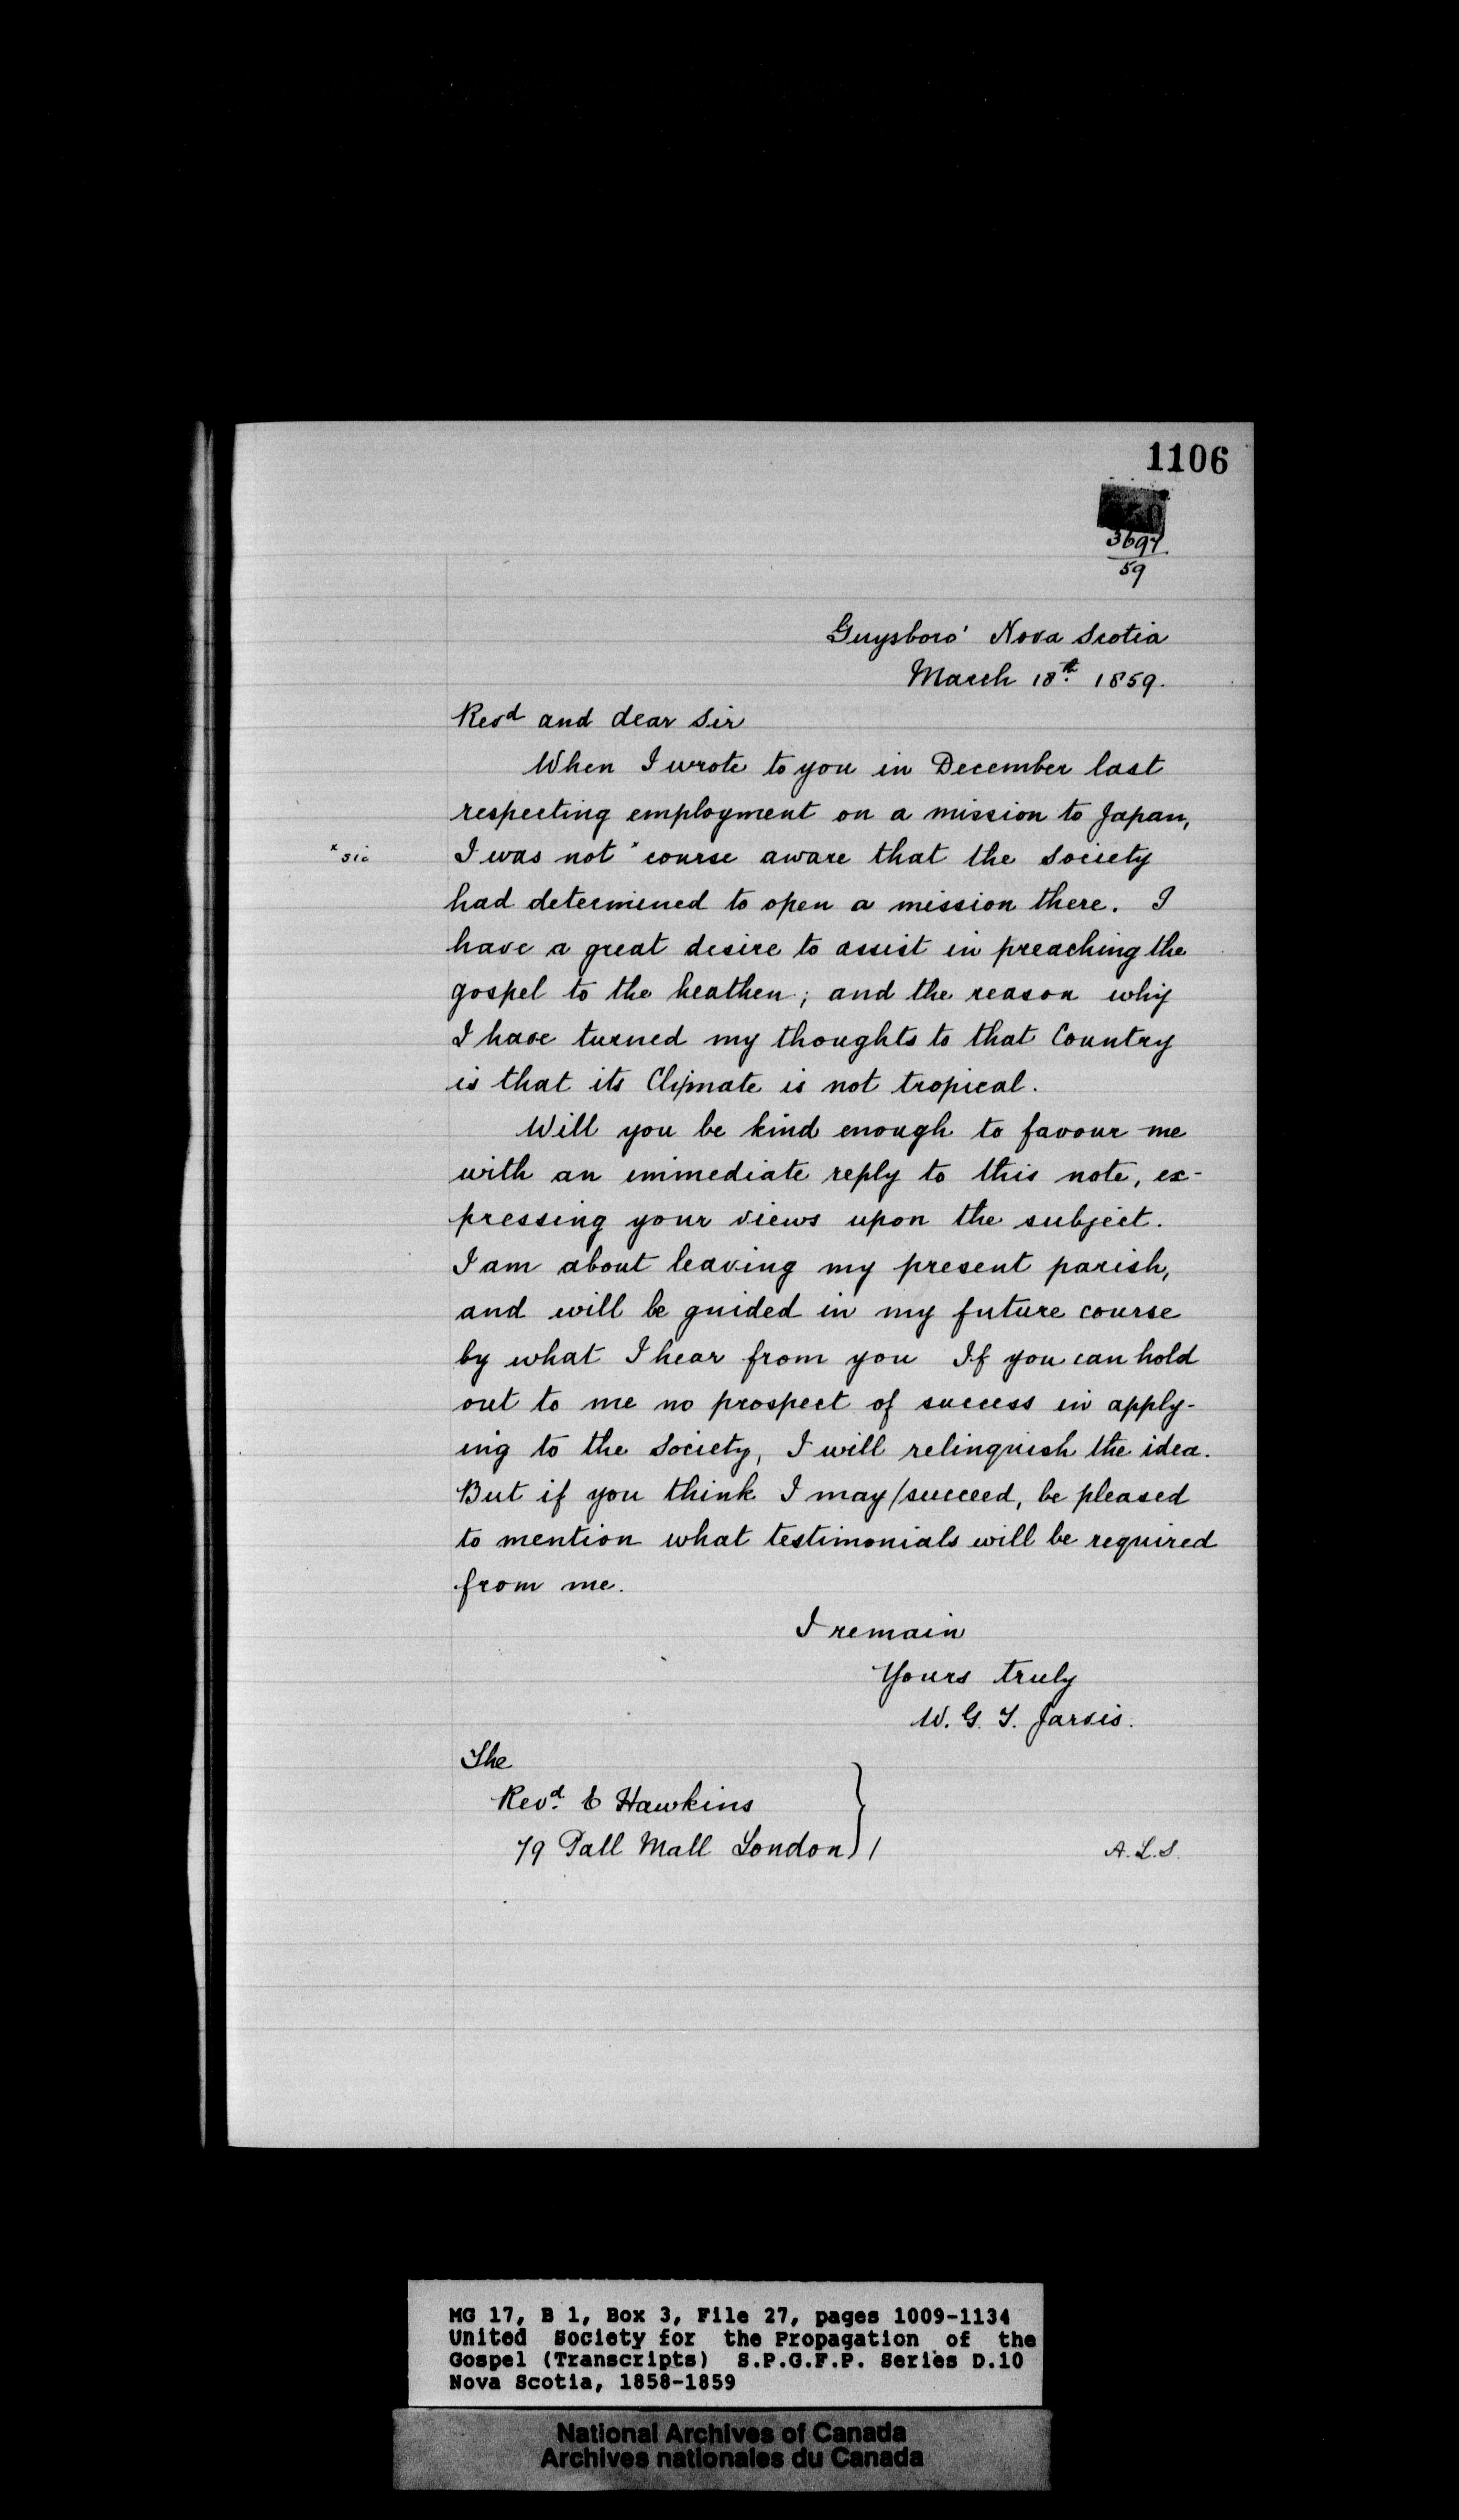 1106
3697
59
Guysboro' Nova Scotia
March 18th. 1859.
Revd and dear Sir
When I wrote to you in December last
respecting employment on a mission to Japan,
x sic
I was not x course aware that the Society
had determined to open a mission there. I
have a great desire to assist in preaching the
gospel to the heathen; and the reason why
I have turned my thoughts to that Country
is that its Climate is not tropical.
Will you be kind enough to favour me
with an immediate reply to this note, ex-
pressing your views upon the subject.
I am about leaving my present parish,
and will be guided in my future course
by what I hear from you If you can hold
out to me no prospect of success in apply-
ing to the Society, I will relinquish the idea.
But if you think I may/succeed, be pleased
to mention what testimonials will be required
from me.
I remain
Yours truly
W. G. T. Jarvis.
The
Revd. E Hawkins
79 Pall Mall London } /
A.L.S.
MG 17, B 1, Box 3, File 27, pages 1009-1134
United Society for the Propagation of the
Gospel (Transcripts) S.P.G.F.P. Series D.10
Nova Scotia, 1858-1859
National Archives of Canada
Archives nationales du Canada